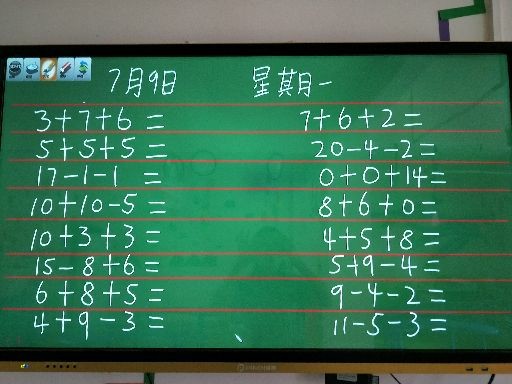 7月9日 星期一
3+7+6= 7+6+2=
5+5+5= 20-4-2=
17-1-1= 0+0+14=
10+10-5= 8+6+0=
10+3+3= 4+5+8=
15-8+6= 5+9-4=
6+8+5= 9-4-2=
4+9-3= 11-5-3=